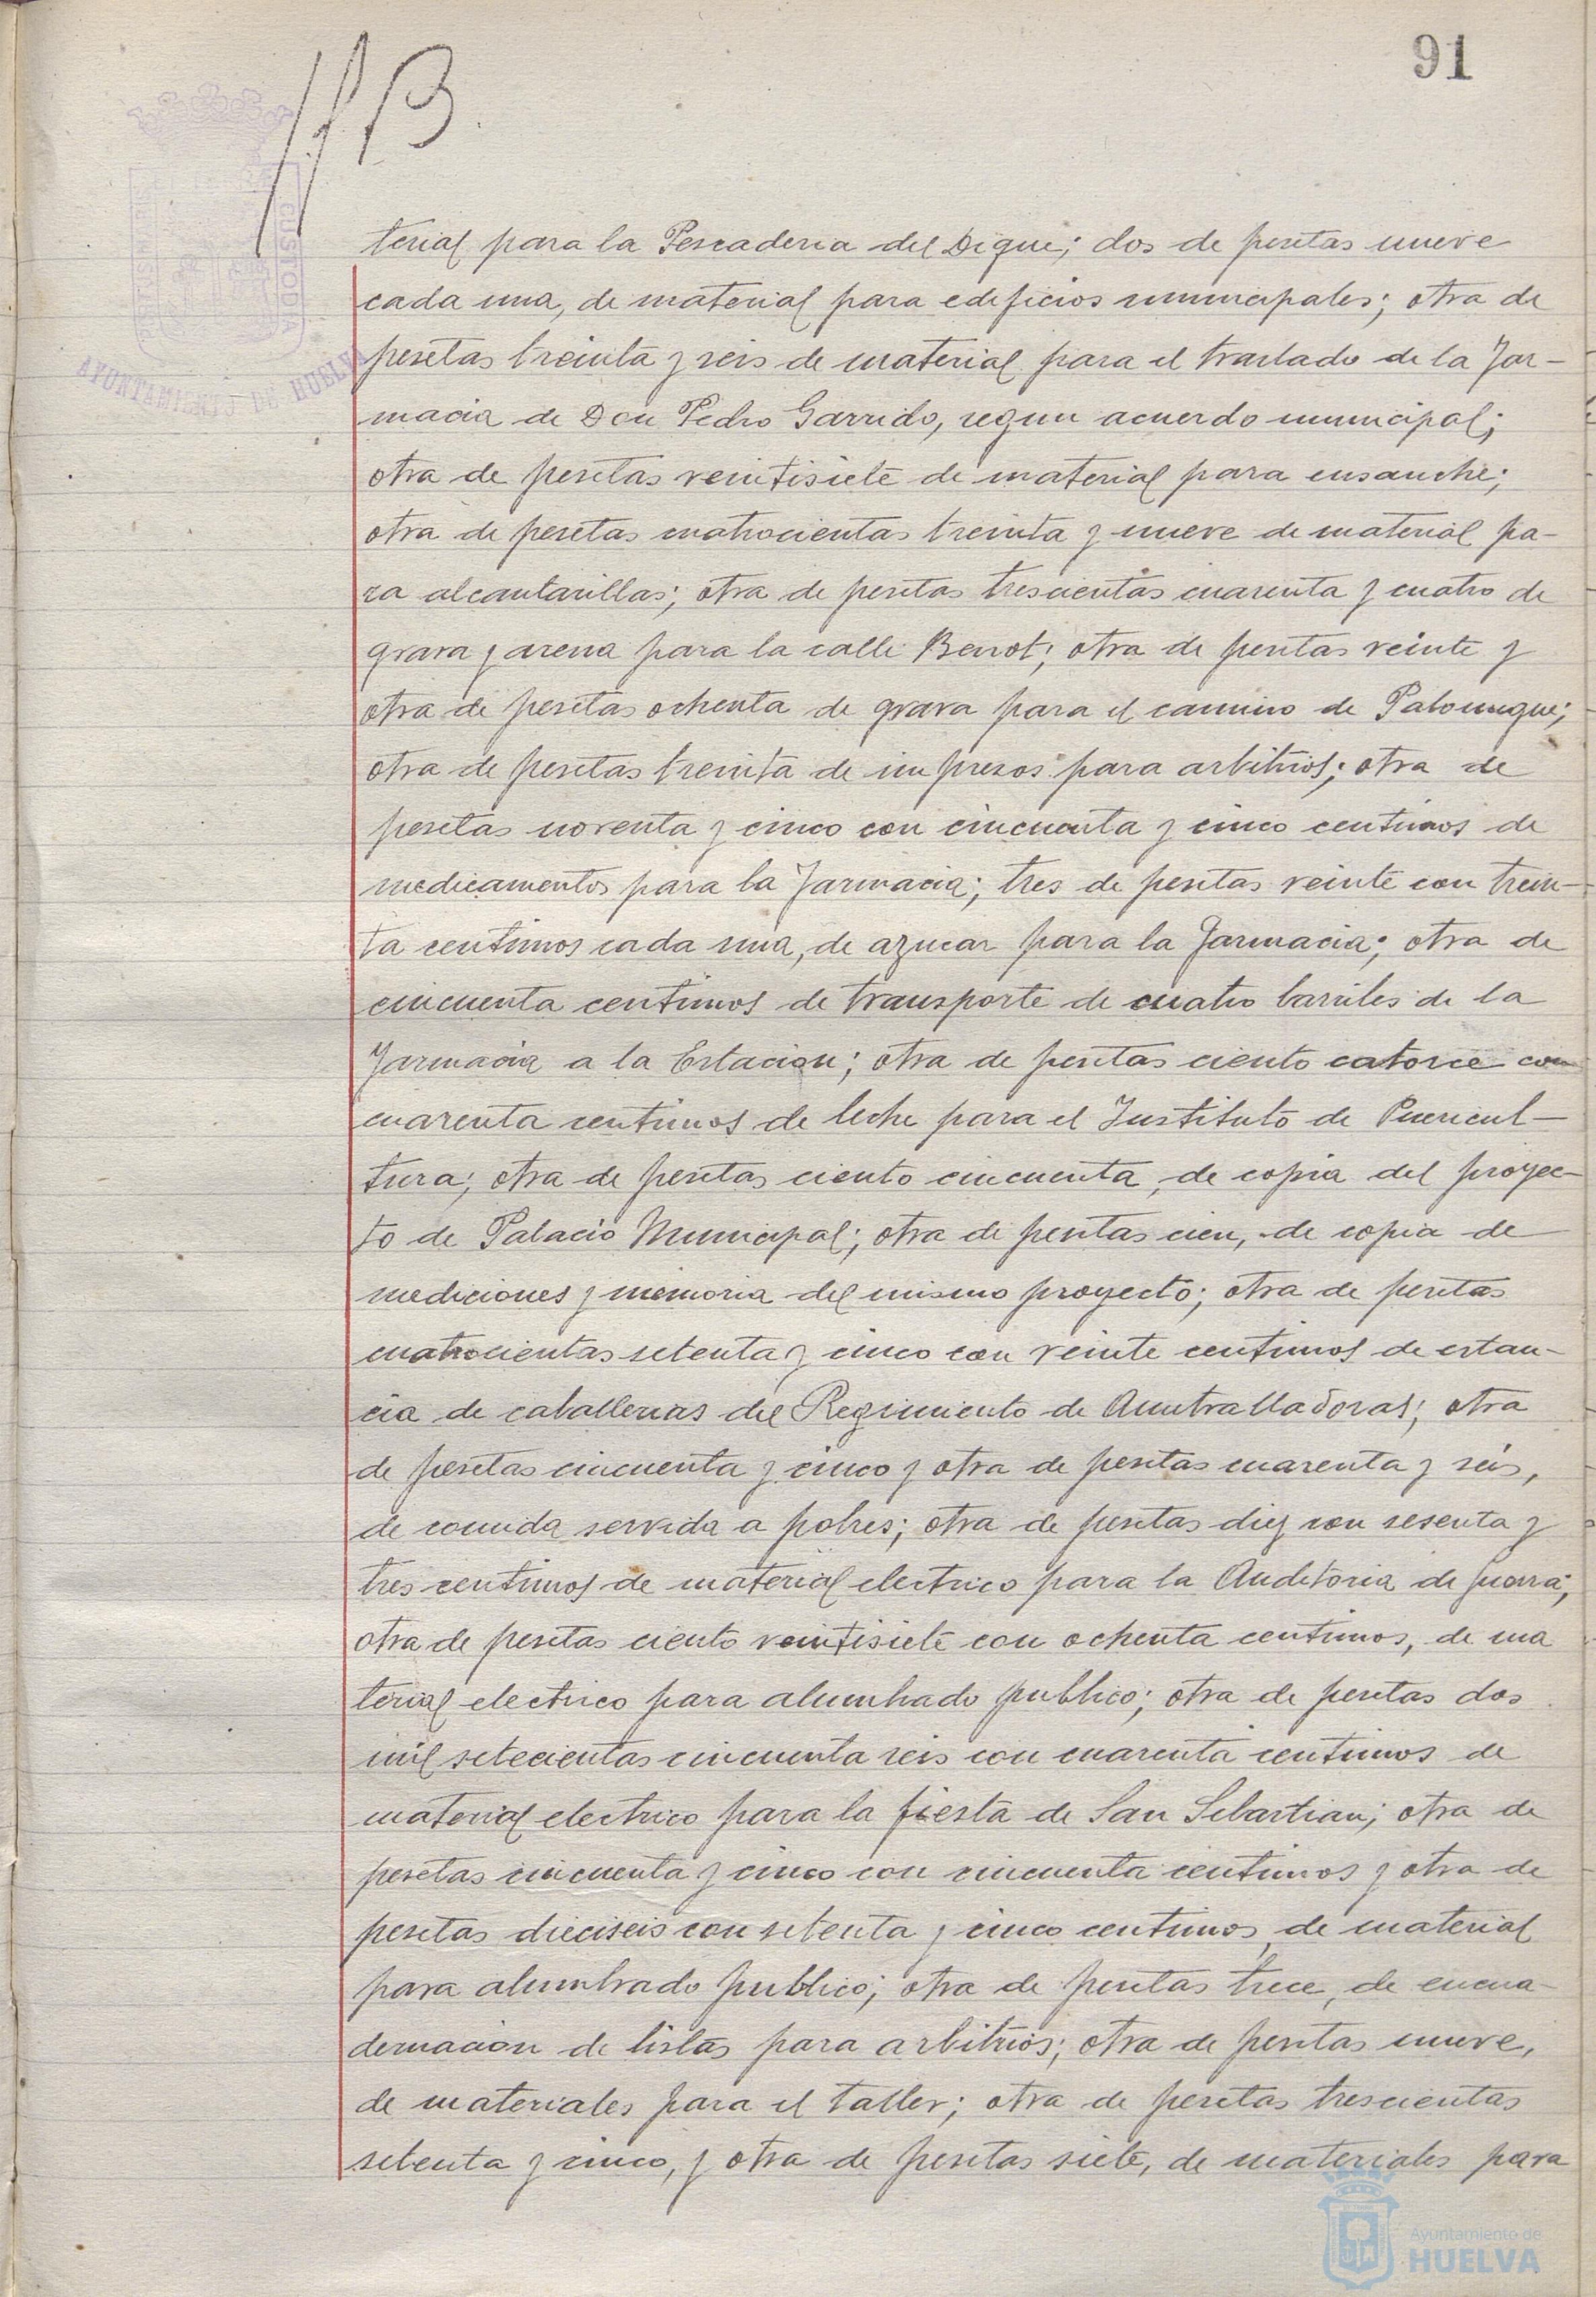 91
terial para la Pescaderia del Dique; dos de pesetas nueve
cada una, de material para edificios municipales; otra de
pesetas treinta y seis de material para el traslado de la Far-
macia de Don Pedro Garrido, segun acuerdo municipal;
otra de pesetas veintisiete de material para ensanche;
otra de pesetas cuatrocientas treinta y nueve de material pa-
ra alcantarillas; otra de pesetas trescientas cuarenta y cuatro de
grava y arena para la calle Benot; otra de pesetas veinte y
otra de pesetas ochenta de grava para el camino de Palomeque;
otra de pesetas treinta de impresos para arbitrios; otra de
pesetas noventa y cinco con cincuenta y cinco centimos de
medicamentos para la Farmacia; tres de pesetas veinte con trein-
ta centimos cada una, de azucar para la Farmacia; otra de
cincuenta centimos de transporte de cuatro barriles de la
Farmacia a la Estacion; otra de pesetas ciento catorce con
cuarenta centimos de leche para el Instituto de Puericul-
tura; otra de pesetas ciento cincuenta, de copia del proyec-
to de Palacio Municipal; otra de pesetas cien, de copia de
mediciones y memoria del mismo proyecto; otra de pesetas
cuatrocientas setenta y cinco con veinte centimos de estan-
cia de caballerias del Regimiento de Ametralladoras; otra
de pesetas cincuenta y cinco y otra de pesetas cuarenta y seis,
de comida servida a pobres; otra de pesetas diez con sesenta y
tres centimos de material electrico para la Auditoria de guerra;
otra de pesetas ciento veintisiete con ochenta centimos, de ma
terial electrico para alumbrado publico; otra de pesetas dos
mil setecientas cincuenta seis con cuarenta centimos de
material electrico para la fiesta de San Sebastian; otra de
pesetas cincuenta y cinco con cincuenta centimos y otra de
pesetas dieciseis con setenta y cinco centimos, de material
para alumbrado publico; otra de pesetas trece, de encua-
dernacion de listas para arbitrios; otra de pesetas nueve,
de materiales para el taller; otra de pesetas trescientas
setenta y cinco, y otra de pesetas siete, de materiales para
AYUNTAMIENTO DE HUELVA
CUSTODIA
Ayuntamiento de
HUELVA